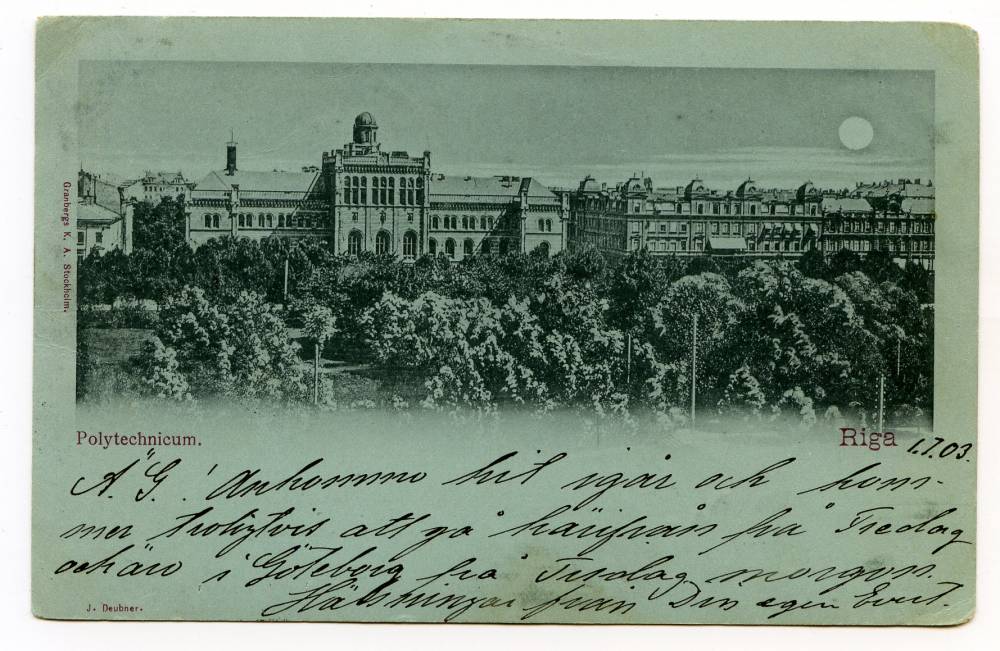 Granbergs K. A. Stockholm.
Polytechnicum.
Riga 1.7.03.
A. G.! Ankommo hit igår och kom-
mer troligtvis att gå härifrån på Fredag
och äro i Göteborg på Tisdag morgon.
Hälsningar från Din egen Evert.
J. Deubner.